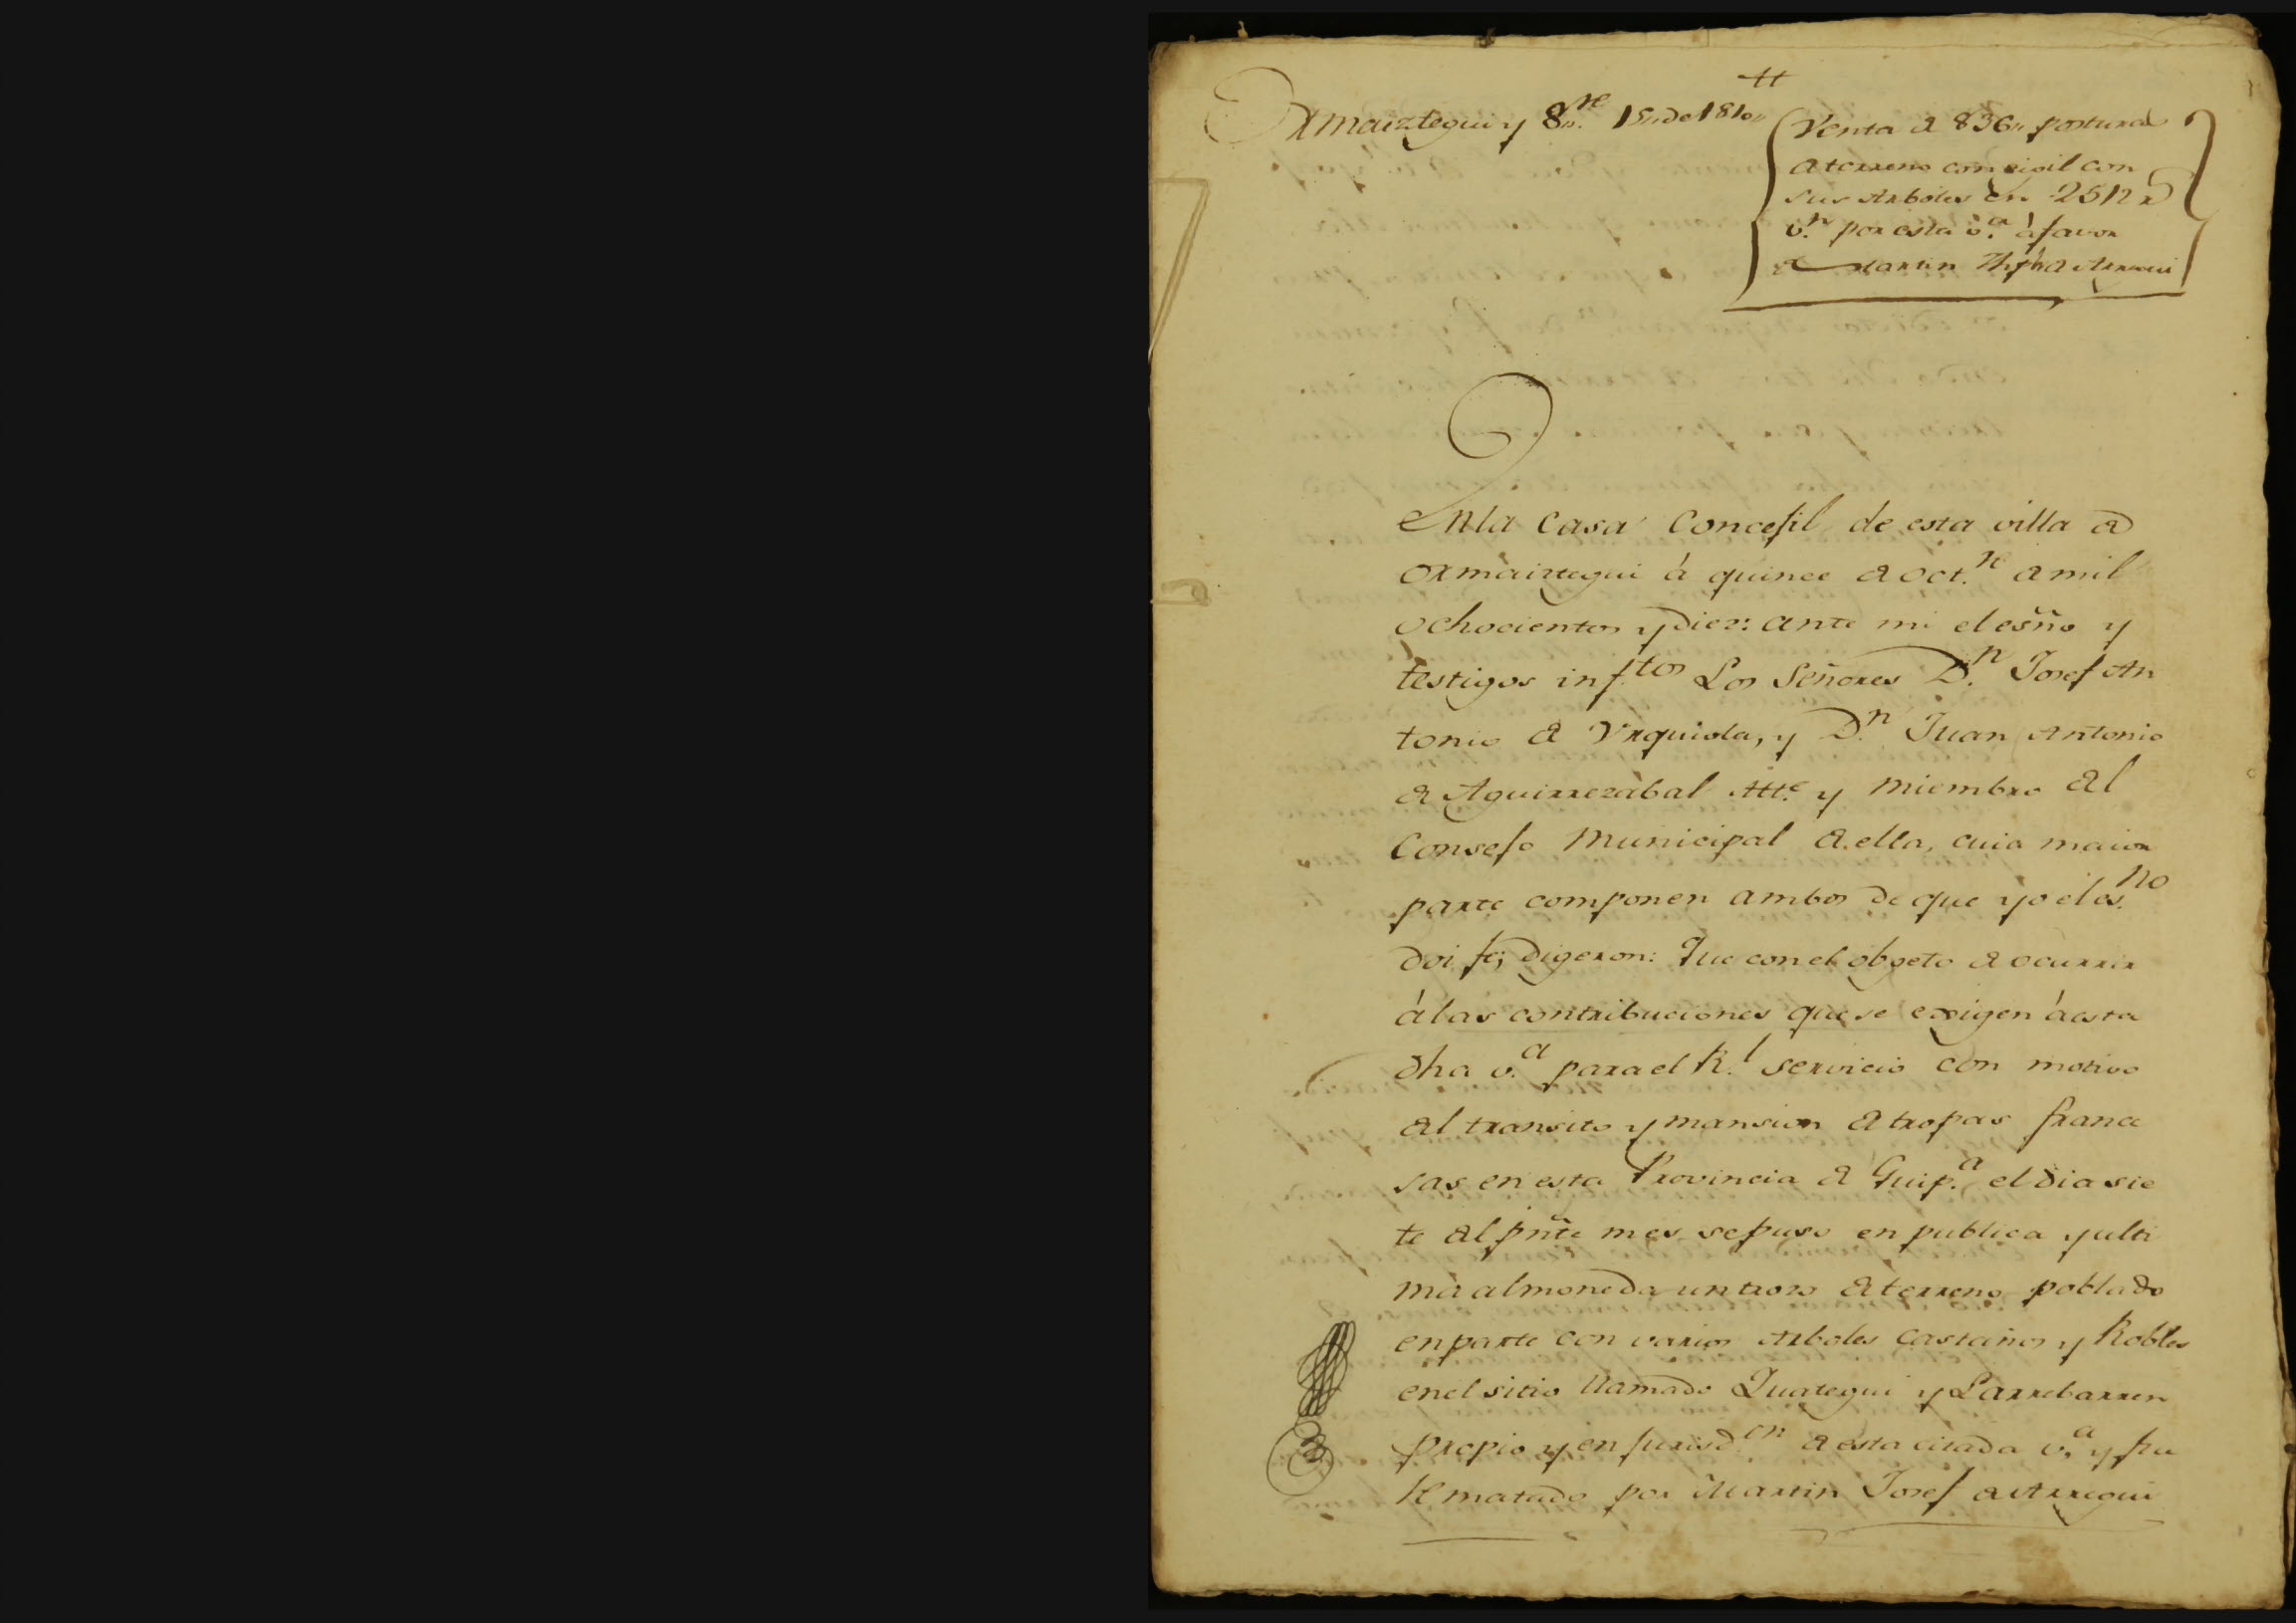 Ormaiztegui y 8.re 15,, de 1810,,
Venta de 836,, posturas
de terreno concejil con
sus Arboles en 2512 rs
v.n por esta v.a á favor
de Martin Jph de Arregui
En la Casa Concejil de esta villa de
Ormaiztegui á quince de Oct.re de mil
ochocientos y diez: ante mi el esño y
testigos inf.tos Los Señores D.n Josef An
tonio de Urquiola, y D.n Juan Antonio
de Aguirrezabal Alt.e y Miembro del
Consejo Municipal de ella, cuia maior
parte componen ambos de que yo el es.no
doi fe; digeron: Que con el obgeto de ocurrir
á las contribuciones que se exigen á esta
dha v.a para el R.l servicio con motivo
del transito y mansion de tropas france
sas en esta Provincia de Guip.a el dia sie
te del pñte mes se puso en publica y ulti
ma almoneda un trozo de terreno poblado
en parte con varios Arboles Castaños y Robles
en el sitio llamado Iuategui y Larrebarren
propio y en jurisd.cn de esta citada v.a y fue
Rematado por Martin Josef de Arregui